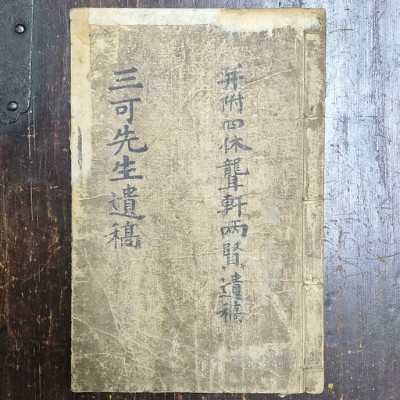 并附四休聾軒兩賢遺稿
三可先生遺稿